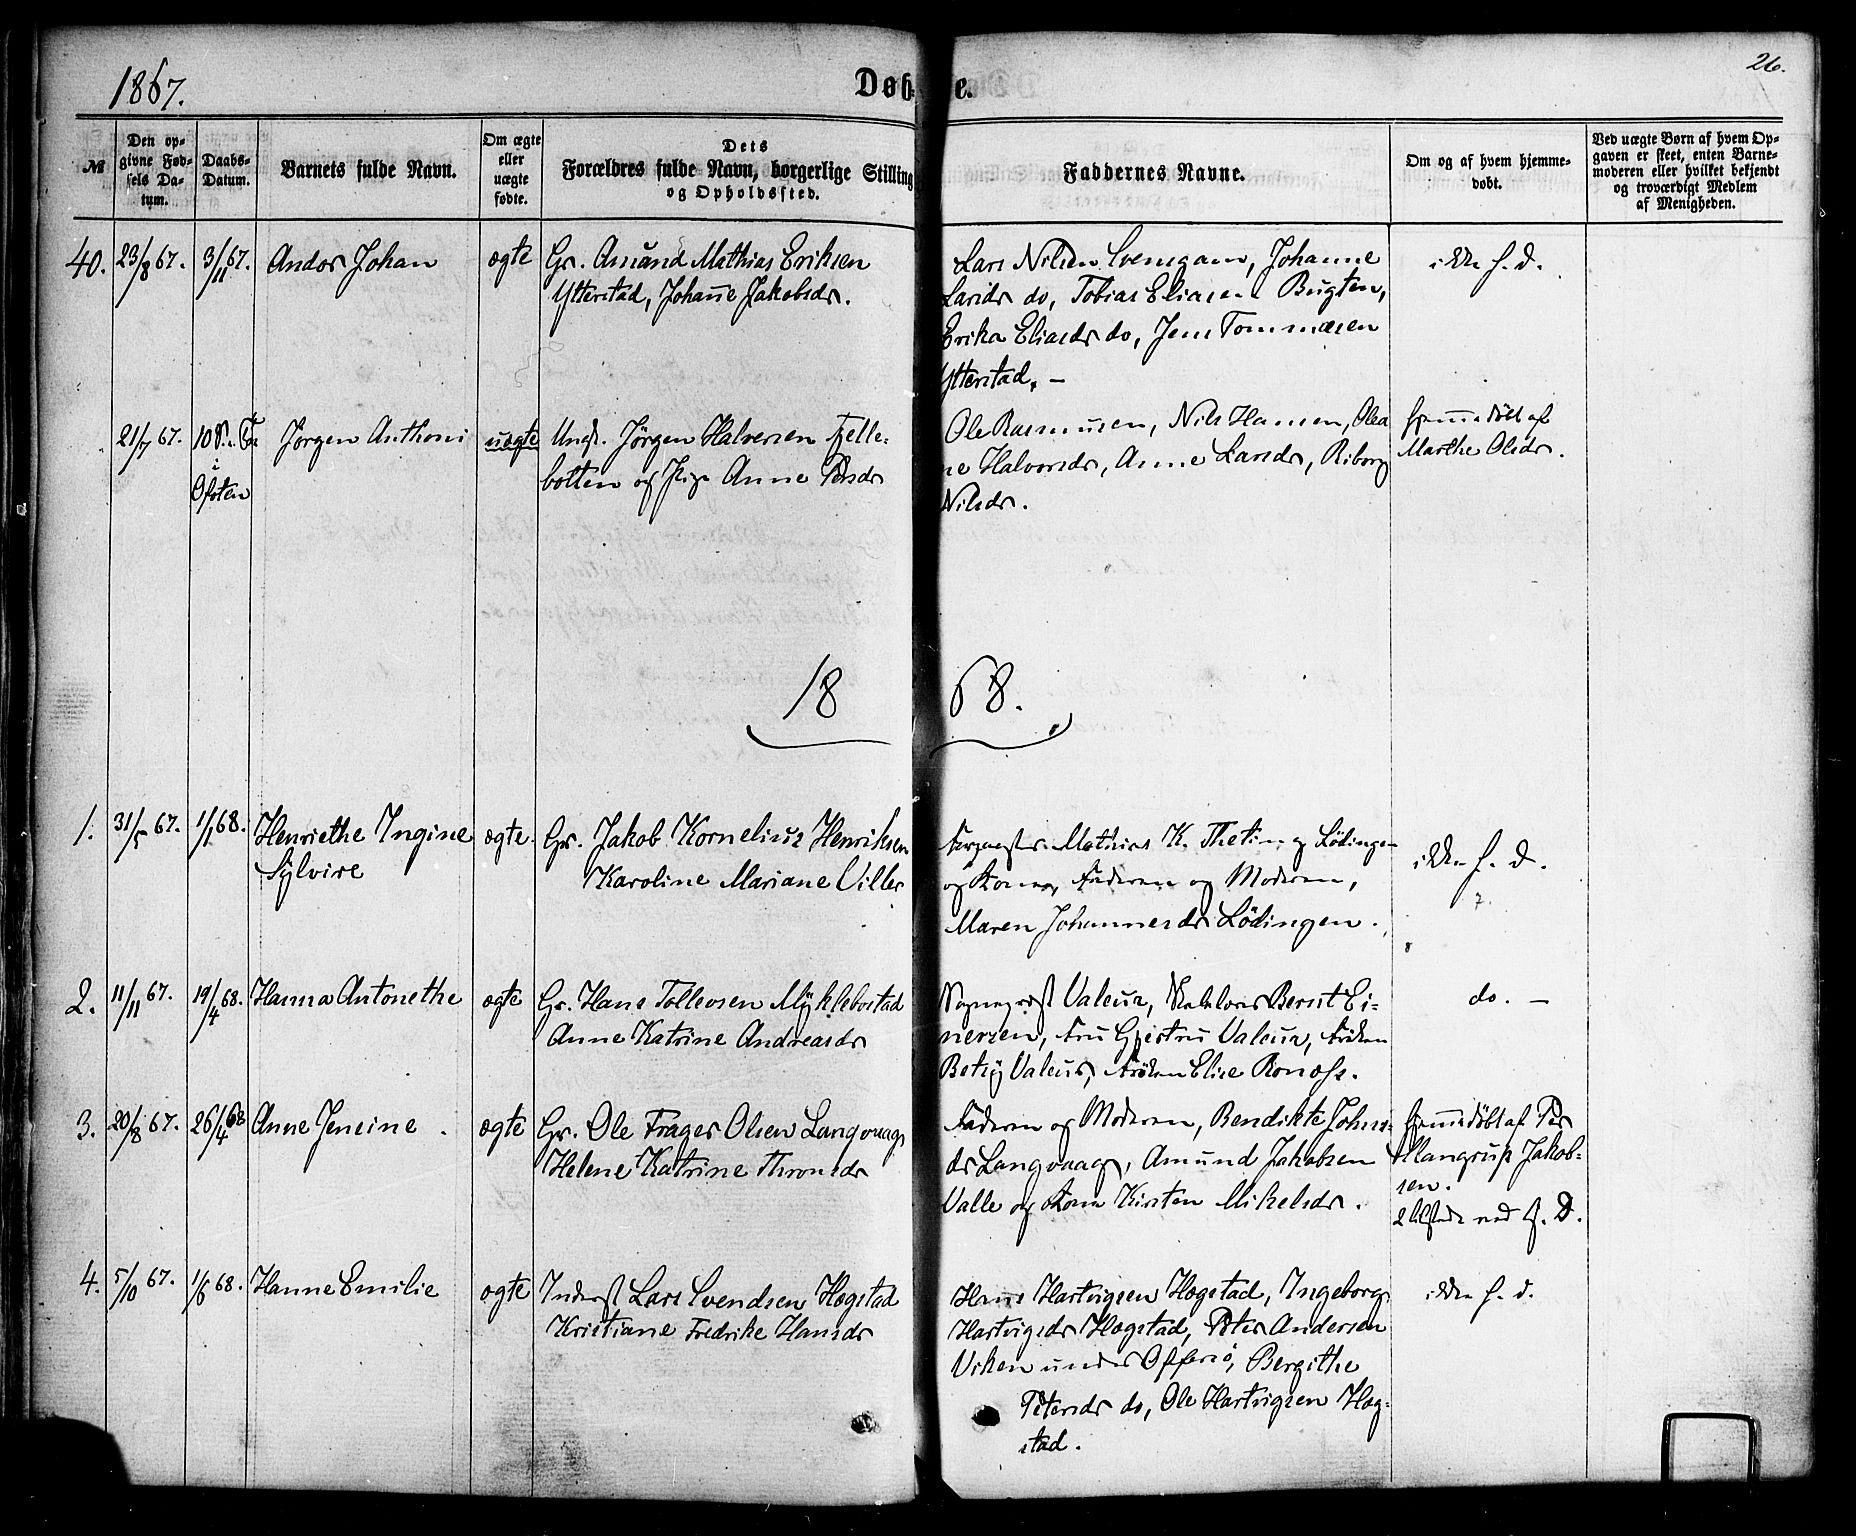 1867.
Døb-
e.
26.
№
Den op-
givne Fød-
sels Da-
tum.
Daabs-
Datum.
Barnets fulde Navn.
Om ægte
eller
uægte
fødte.
Dets
Forældres fulde Navn, borgerlige Stilling
og Opholdssted.
Faddernes Navne.
Om og af hvem hjemme-
døbt.
Ved uægte Børn af hvem Op-
gaven er skeet, enten Barne-
moderen eller hvilket bekjendt
og troværdigt Medlem
af Menigheden.
40. 23/8 67. 3/11 67. Andor Johan ægte Gr. Amund Mathias Eriksen
Ytterstad, Johanne Jakobsdr.
Lars Nilsen Svensgam, Johanne
Larsdr do, Tobias Eliasen Bugten,
Erika Eliasdr do, Jens Tommesen
Ytterstad. —
ikke h. d.
21/7 67. 10 S. e. Tr.
i
Ofoten
Jørgen Anthoni uægte Ungk. Jørgen Halvorsen Fjelle-
botten og Pige Anne Persdr
Ole Rasmusen, Nils Hansen, Olea
ne Halvorsdr, Anne Larsdr, Riborg
Nilsdr.
hjemmedöbt af
Marthe Olsdr.
18 68.
1. 31/5 67. 1/1 68. Henriethe Ingine
Sylvire
ægte. Gr. Jakob Kornelius Henriksen
Karoline Mariane Viller
Mathias K. Lödingen
og Kone, Faderen og Moderen,
Maren Johannesdr Lödingen.
ikke h. d.
2. 11/11 67. 19/4 68. Hanna Antonethe ægte Gr. Hans Tollevsen Myklebostad
Anne Katrine Andreasdr
Sognepræst Valeur, Bernt Ei-
nersen, Fru Valeur, Fröken
Betsy Valeur, Fröken Elise
do. —
3. 20/8 67. 26/4 68 Anne Jensine. ægte Gr. Ole Frager Olsen Langvaag,
Helene Katrine Thronsdr
Faderen og Moderen, Bendikte Johns-
dr Langvaag, Amund Jakobsen
Valle og Kone Kirsten Mikelsdr.
hjemmedöbt af Per
Mangrup Jakob-
sen.
2 tilstede ved h. D.
4. 5/10 67. 1/6 68. Hanne Emilie ægte Inderst Lars Svendsen Hægstad
Kristiane Fredrike Hansdr
Hans Hartvigsen Hægstad, Ingeborg
Hartvigsdr Hægstad, Peter Andersen
Viken under Offersö, Bergithe
Petersdr do, Ole Hartvigsen Hæg-
stad.
ikke h. d.